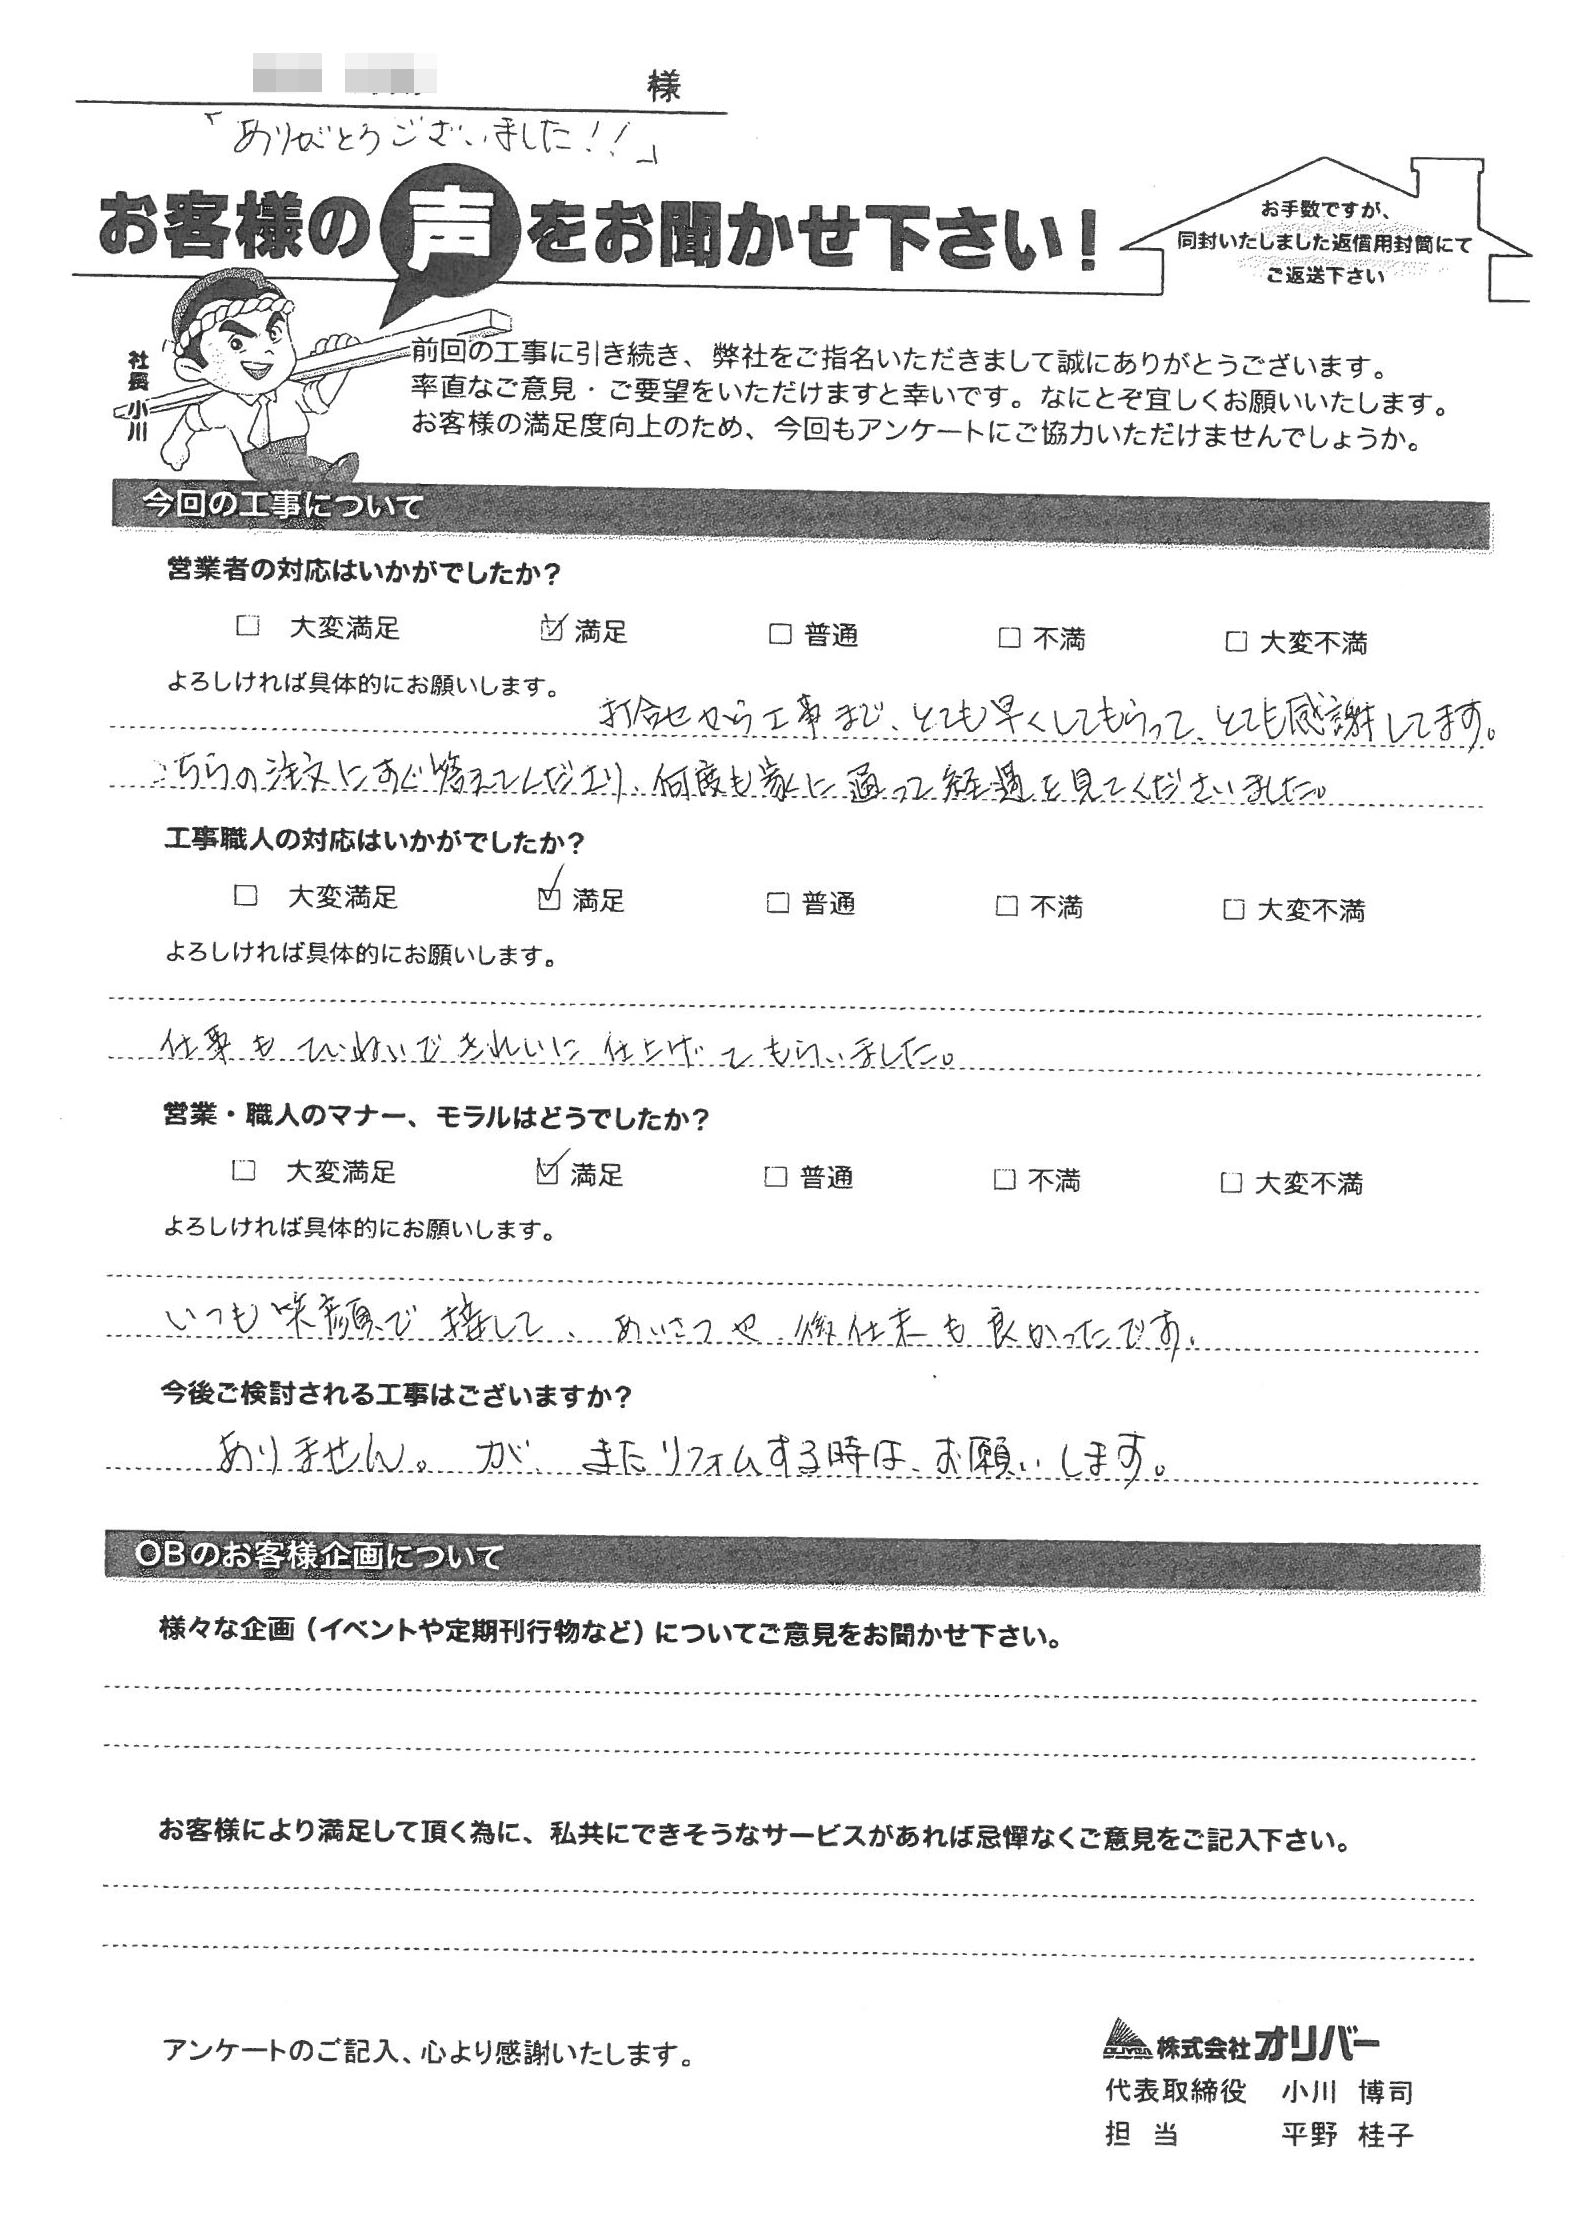 様
「ありがとうございました!!」
お客様の声をお聞かせ下さい！
お手数ですが、
同封いたしました返信用封筒にて
ご返送下さい
社長 小川
前回の工事に引き続き、弊社をご指名いただきまして誠にありがとうございます。
率直なご意見・ご要望をいただけますと幸いです。なにとぞ宜しくお願いいたします。
お客様の満足度向上のため、今回もアンケートにご協力いただけませんでしょうか。
今回の工事について
営業者の対応はいかがでしたか？
□ 大変満足 ☑ 満足 □ 普通 □ 不満 □ 大変不満
よろしければ具体的にお願いします。
打合せから工事まで、とても早くしてもらって、とても感謝してます。
こちらの注文にすぐ答えてくださり、何度も家に通って経過を見てくださいました。
工事職人の対応はいかがでしたか？
□ 大変満足 ☑ 満足 □ 普通 □ 不満 □ 大変不満
よろしければ具体的にお願いします。
仕事もていねいできれいに仕上げてもらいました。
営業・職人のマナー、モラルはどうでしたか？
□ 大変満足 ☑ 満足 □ 普通 □ 不満 □ 大変不満
よろしければ具体的にお願いします。
いつも笑顔で接して、あいさつや後仕末も良かったです。
今後ご検討される工事はございますか？
ありません。が、またリフォムする時は、お願いします。
OBのお客様企画について
様々な企画（イベントや定期刊行物など）についてご意見をお聞かせ下さい。
お客様により満足して頂く為に、私共にできそうなサービスがあれば忌憚なくご意見をご記入下さい。
アンケートのご記入、心より感謝いたします。
株式会社オリバー
代表取締役 小川 博司
担当 平野 桂子